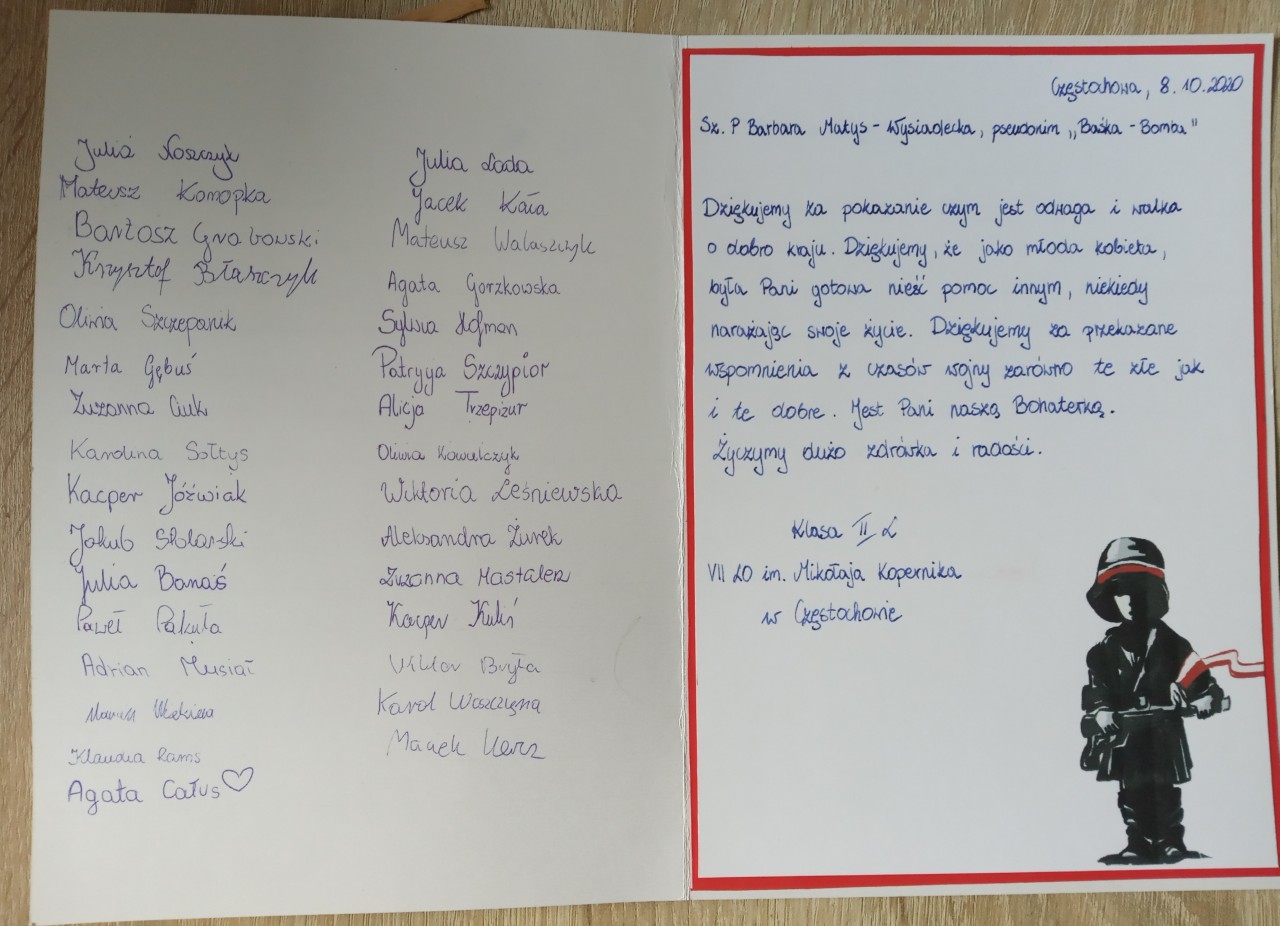 Julia Noszczyk
Mateusz Konopka
Bartosz Grabowski
Krzysztof Błaszczyk
Oliwia Szczepanik
Marta Gębuś
Zuzanna Ciuk
Karolina Sołtys
Kacper Jóźwiak
Jakub Stolarski
Julia Banaś
Paweł Pakuła
Adrian Musiał
Klaudia Rams
Agata Całus
Julia Łada
Jacek Kaia
Mateusz Walaszczyk
Agata Gorzkowska
Sylwia Hofman
Patrycja Szczypior
Alicja Trzepizur
Oliwia Kowalczyk
Wiktoria Leśniewska
Aleksandra Żurek
Zuzanna Mastalerz
Kacper Kuliń
Wiktor Bryła
Karol Woszczyna
Marek
Częstochowa, 8.10.2020
Sz. P Barbara Matys-Wysiadecka, pseudonim „Baśka-Bomba"
Dziękujemy za pokazanie czym jest odwaga i walka
o dobro kraju. Dziękujemy, że jako młoda kobieta,
była Pani gotowa nieść pomoc innym, niekiedy
narażając swoje życie. Dziękujemy za przekazane
wspomnienia z czasów wojny zarówno te złe jak
i te dobre. Jest Pani naszą Bohaterką.
Życzymy dużo zdrówka i radości.
Klasa II L
VII LO im. Mikołaja Kopernika
w Częstochowie